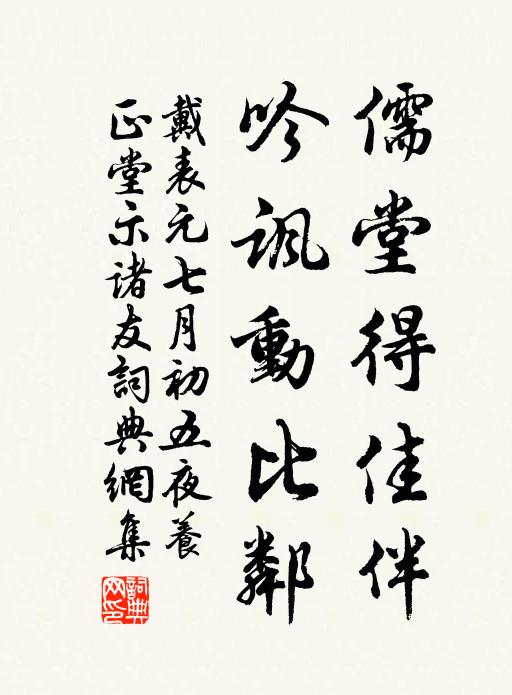 儒堂得佳伴
吟諷動比鄰
戴表元七月初五夜養
正堂示諸友詞典網集
詞典
网印